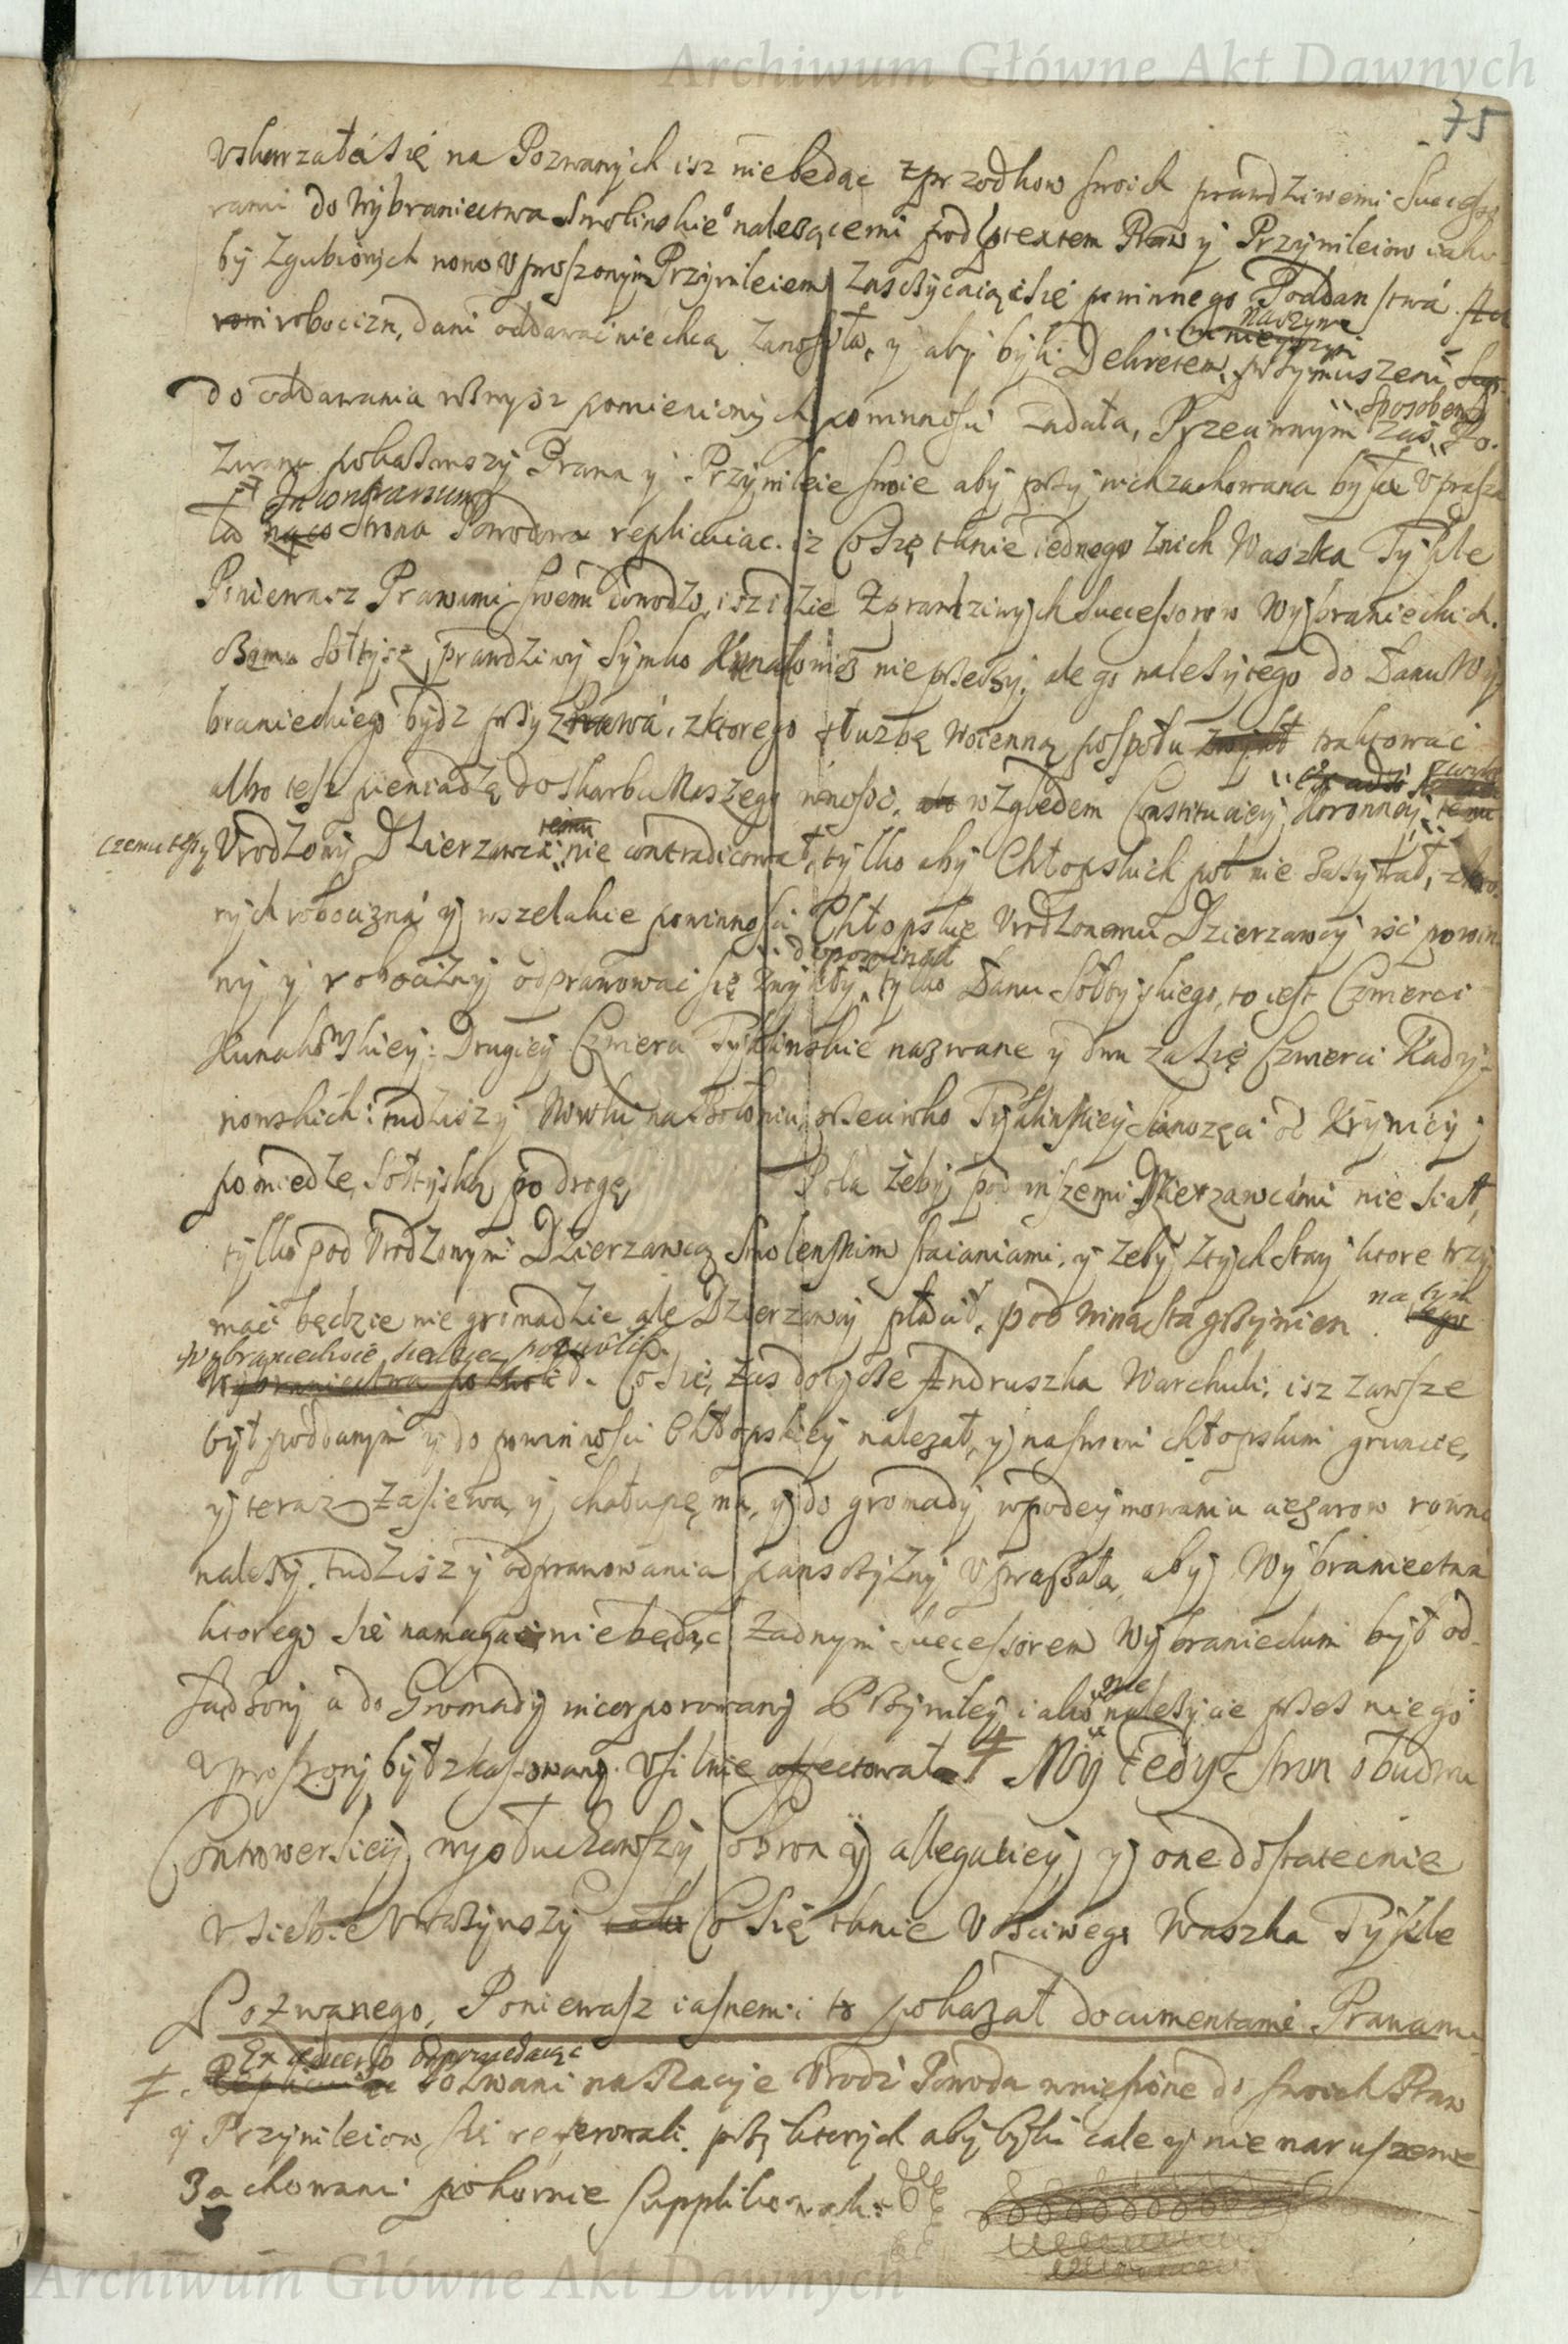 Archiwum Główne Akt Dawnych
75
Uskarzała się na Pozwanych isz niebedąc z przodkow swoich prawdziwemi Success
rami do Wybraniectwa Smolinskie° nalezącemi pod Praw y Przywileiow iako
by Zgubionych nowo Uproszonym Przywileiem zasczycaiąc się powinnego Poddanstwá
robocizn, dani oddawać niechcą zanosiła, y aby byli Dekretem naszym przymuszeni
do oddawania wswysz pomienionych powinnosci żądała, Przeciwnym sposobem zaś Po.
zwana pokazawszy Prawa y Przywileie swoie aby przy nich zachowana była Uprasza
ła In contrarium Strona Powodowa replicuiac. iz Co się tknie iednego znich Waszka Tykle
Poniewasz Prawami swemi dowodzi, isz idzie z prawdziwych Successorow Wybranieckich.
Sołtysz prawdziwy Symko nie przeczy, ale go nalezytego do Łanu Wy
branieckiego bydz przyznawa, z ktorego służbę woienną pospołu traktować
albo tesz pieniądzę do Skarbu Naszego wnosić, względem Constituciey Koronney,
czemu tesz Urodzony Dzierzawca nie contradicował, tylko aby Chłopskich pol nie zazywał, z kto
rych robocizná y wszelakie powinnosci Chłopskie Urodzonemu Dzierzawcy iść powin
ny y robocizny odprawować się zwykły, dopominał tylko Łanu Sołtyskiego, to iest Czwerci
Kunakowskiey: Drugiey Czwerci Tyklinskie nazwane y dwu zasię Czwerci Kady-
nowskich: tudziszy na Błoniu, przeciwko Tyklinskiey Sianozęci od Krynicy
pomiedze Sołtyską po drogę Pola żeby pod inszemi Dzierzawcámi nie siał,
tylko pod Urodzonym Dzierzawcą Smolenskim staianiami, y zeby ztych stay ktore trzy
mać będzie nie gromadzie ale Dzierzawcy płacił, pod winą sta grzywien. na tym
Wybraniectwie siedzieć pozwolił. Co się zas dotycze Andruszka Warchuli, isz zawsze
był poddanym y do powinnosci Chłopskiey nalezał, y na swoim chłopskim gruncie,
y teraz zasiewa, y chałupę ma, y do gromady wpodeymowaniu cięzarow rowno
nalezy, tudzisz y odprawowania pansczyzny Upraszała, aby Wybraniectwa
ktorego się niebędąc żadnym Successorem Wybranieckim był od-
sądzony a do Gromady incorporowany Przywiley iako nie nalezycie przez niego
uproszony był zkassowany. Usilnie affectowała ‡ My tedy Stron obudwu
Controwersiey wysłuchawszy obron y allegatiey y one dostatecznie
u siebie Uwazywszy Co się tknie Uczciwego Waszka Tykle
Pozwanego, Poniewasz iasnemi to pokazał documentami Prawami
‡. Ex adverso odpowiedaiąc Pozwani na Racye Urodz Powoda wniesione do swoich Praw
y Przywileiow się referowali, przy ktorych aby byli cale y nie naruszenie
Zachowani pokornie supplikowali:
Archiwum Główne Akt Dawnych